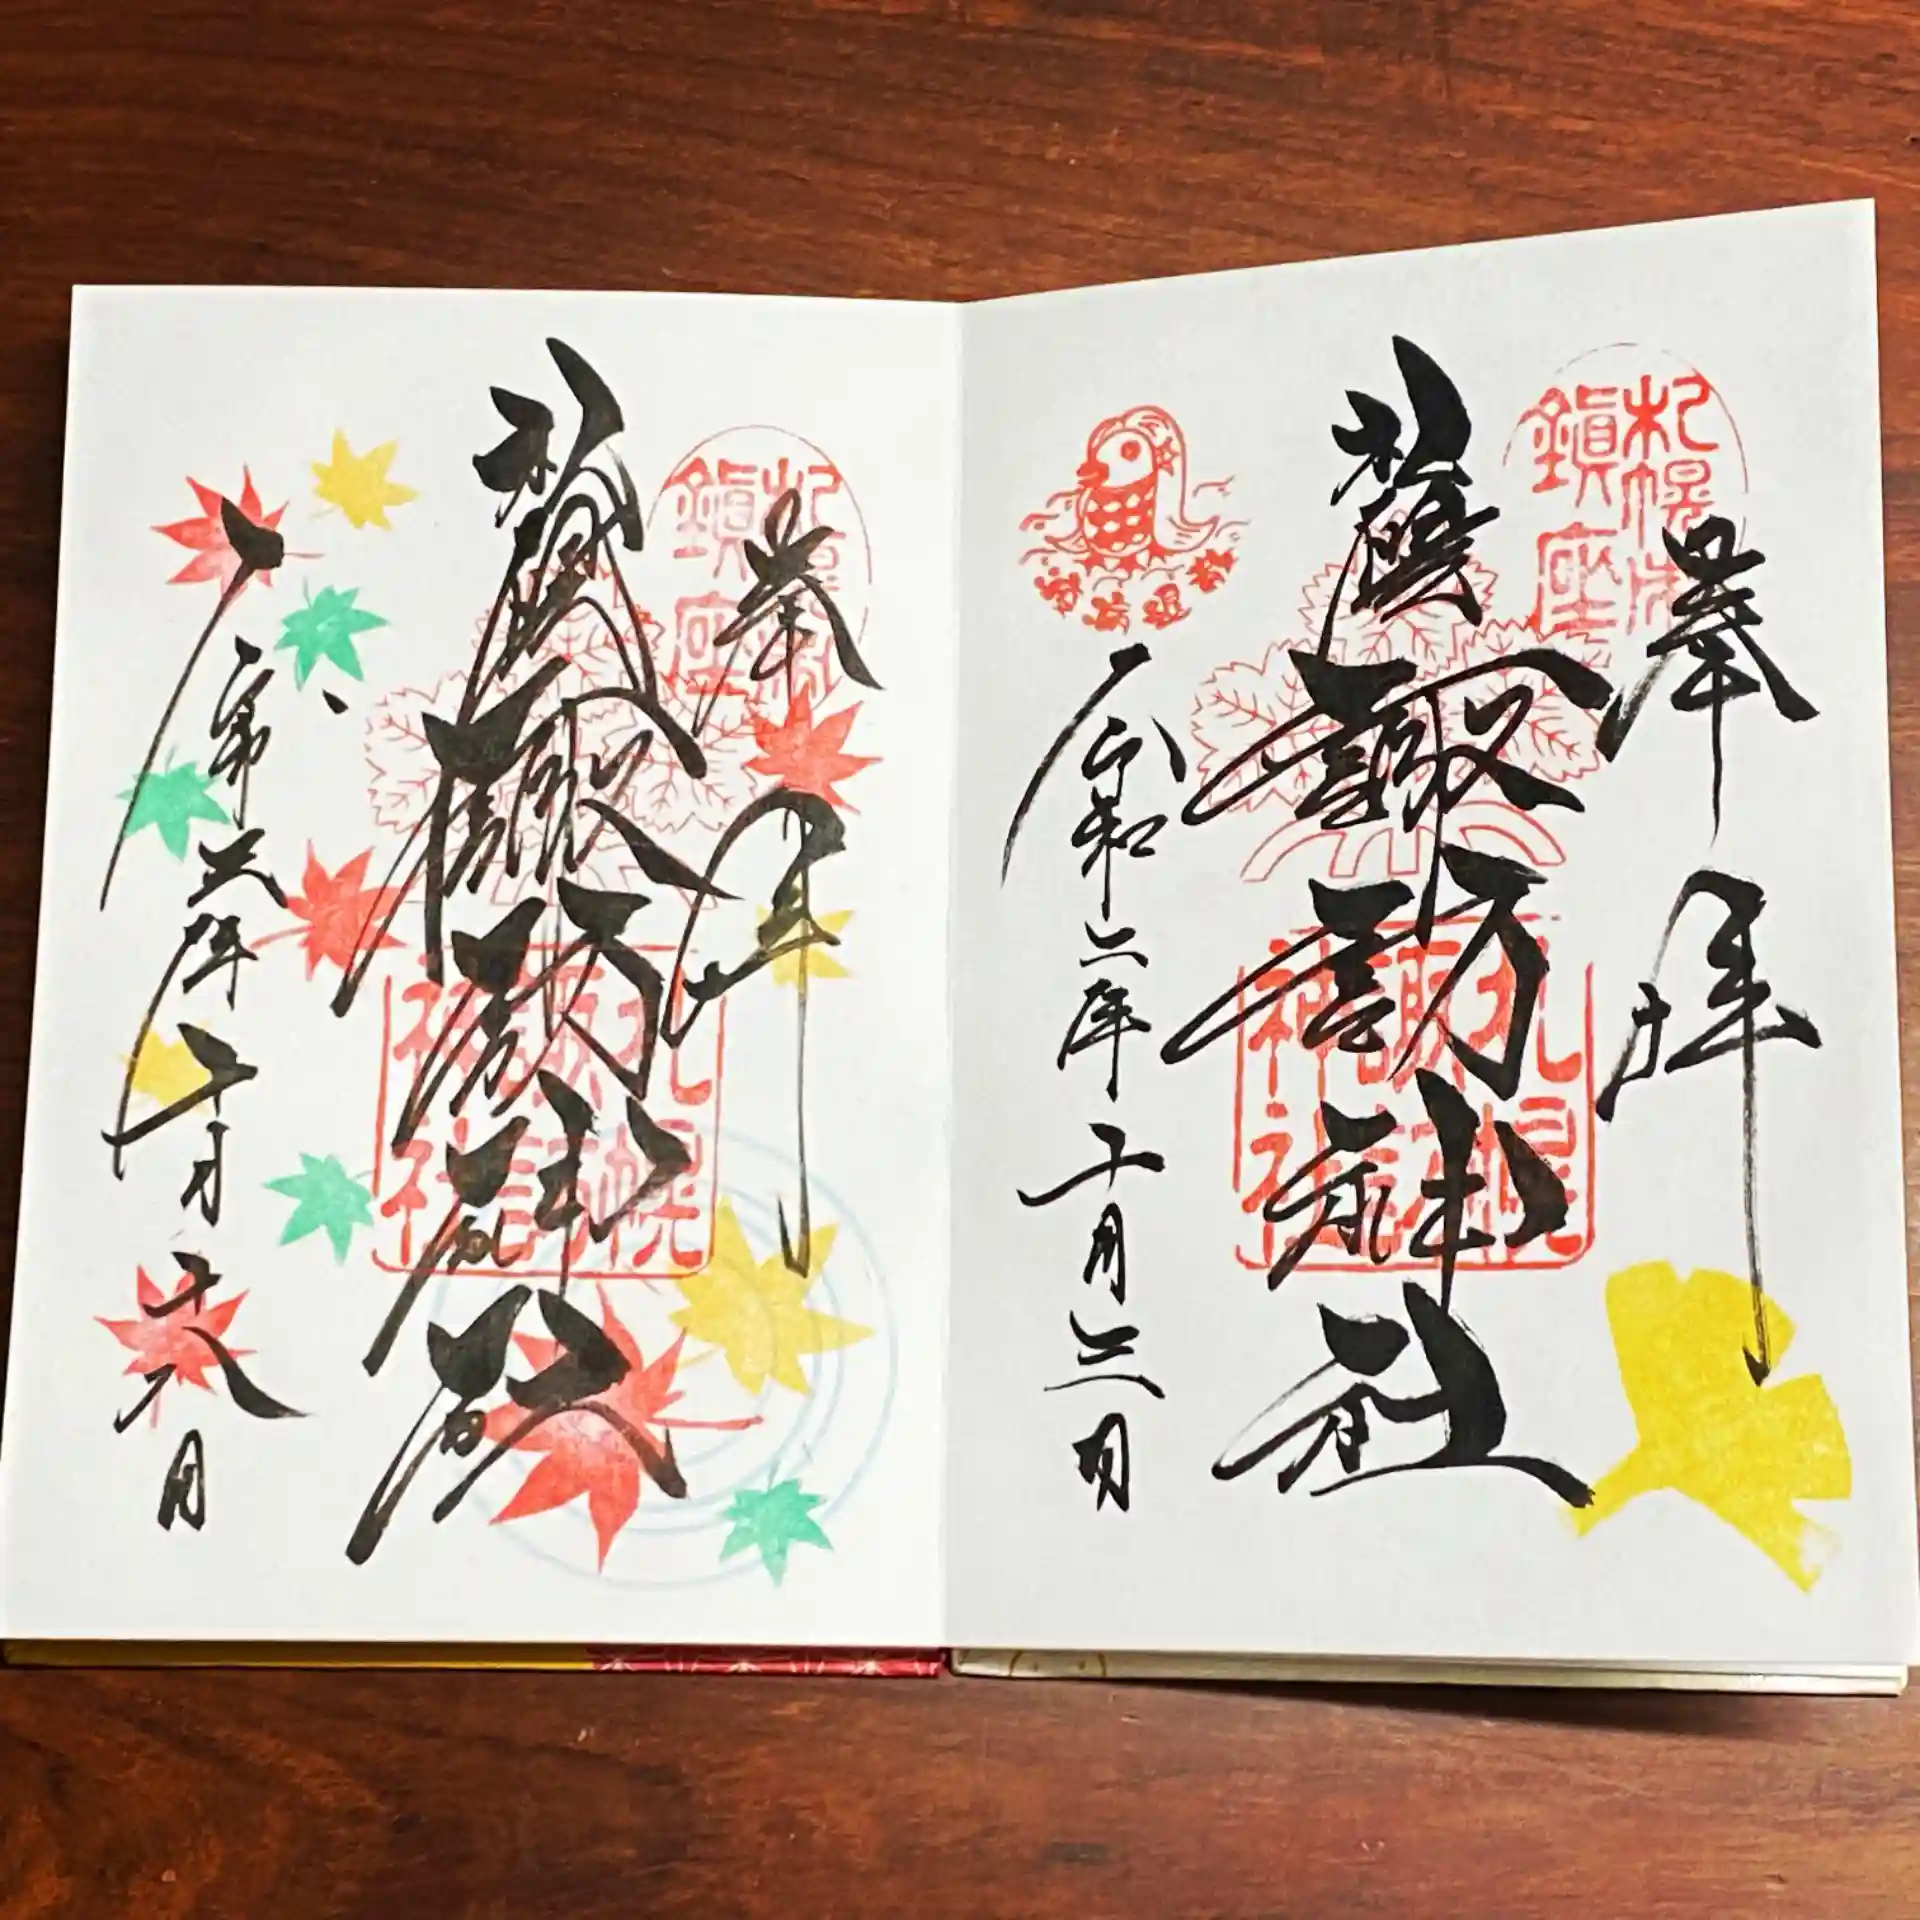 奉拝
札幌
鎮座
札幌諏訪神社
札幌
諏訪
神社
令和二年十月三日
奉拝
札幌
鎮座
札幌諏訪神社
札幌
諏訪
神社
十月十八日